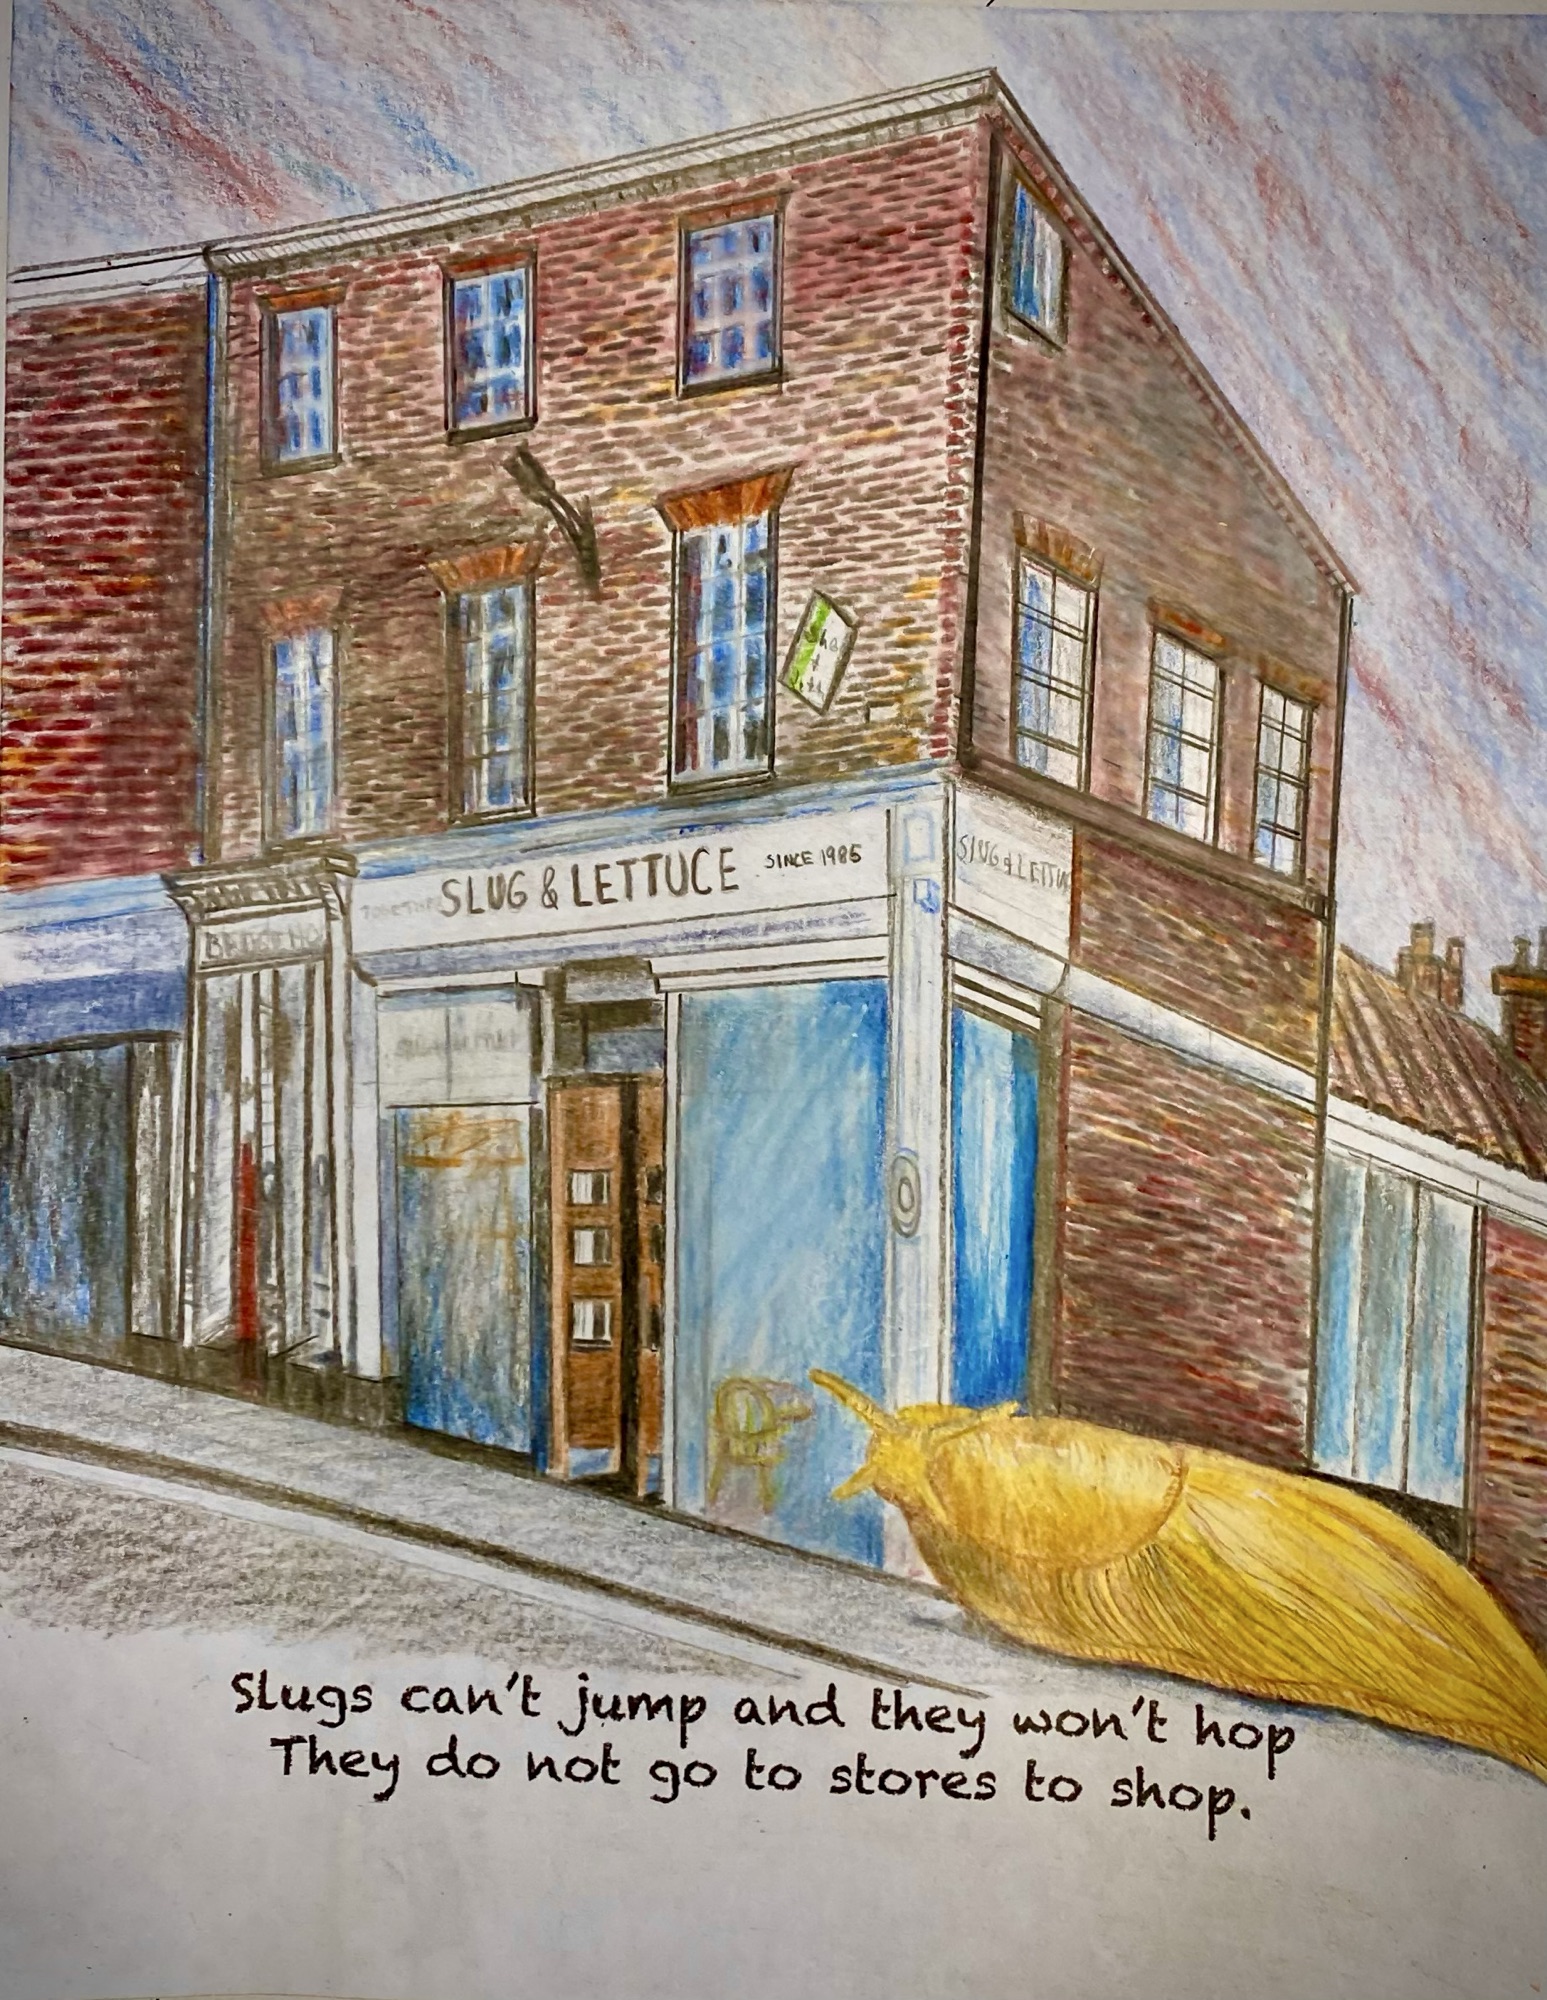 SLUG & LETTUCE SINCE 1985
SLUG & LETTU
Slugs can't jump and they won't hop
They do not go to stores to shop.